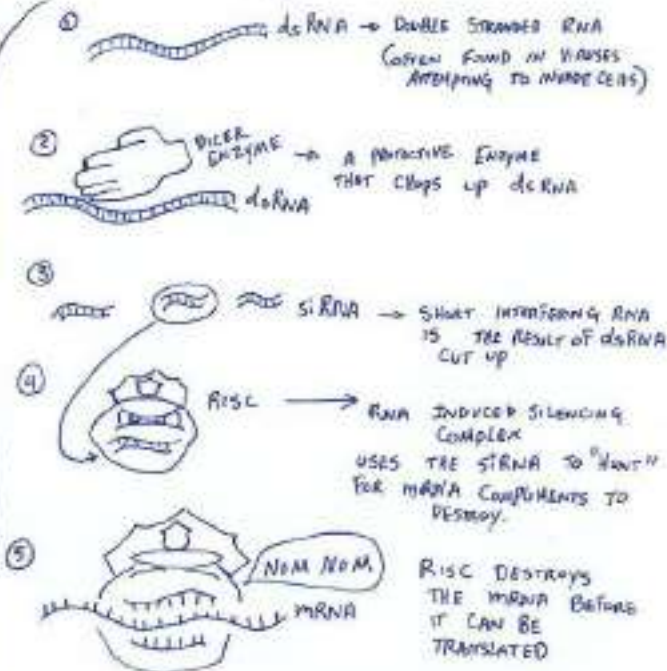 ① dsRNA → DOUBLE STRANDED RNA
(OFTEN FOUND IN VIRUSES
ATTEMPTING TO INVADE CELLS)
② DICER
ENZYME → A PROTECTIVE ENZYME
THAT CHOPS UP dsRNA
dsRNA
③ siRNA → SHORT INTERFERING RNA
IS THE RESULT OF dsRNA
CUT UP
④ RISC → RNA INDUCED SILENCING
COMPLEX
USES THE SiRNA TO "HUNT"
FOR mRNA COMPLIMENTS TO
DESTROY.
⑤ NOM NOM
mRNA
RISC DESTROYS
THE mRNA BEFORE
IT CAN BE
TRANSLATED